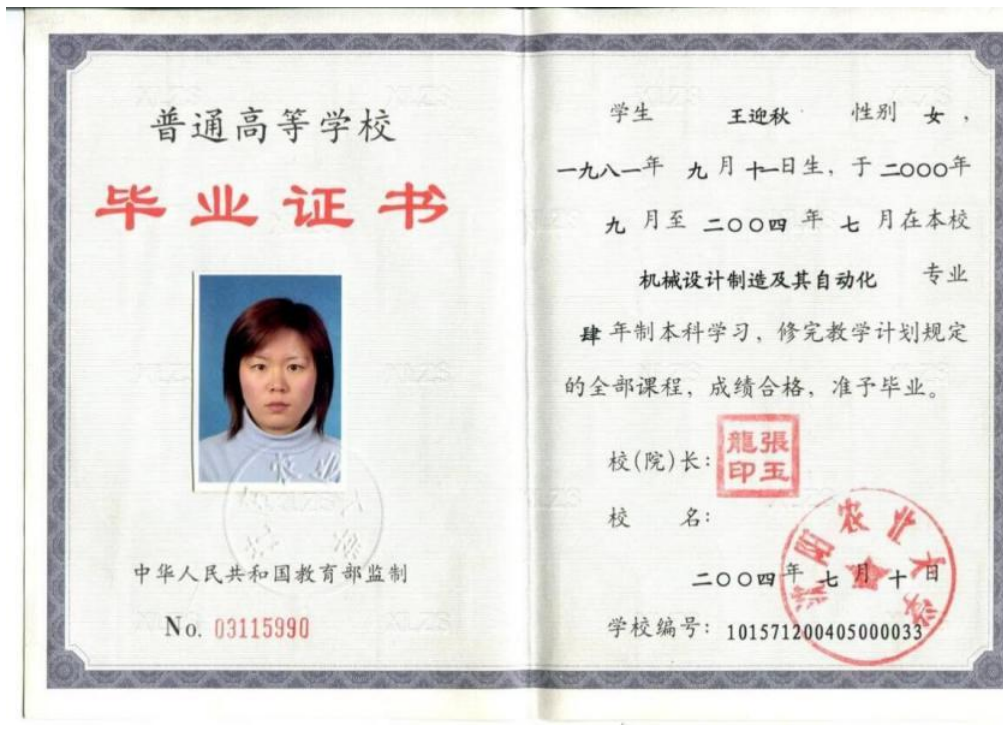 普通高等学校
毕业证书
中华人民共和国教育部监制
No. 03115990
学生 王迎秋 性别 女，
一九八一年 九月十一日生，于二〇〇〇年
九月至二〇〇四年七月在本校
机械设计制造及其自动化 专业
肆年制本科学习，修完教学计划规定
的全部课程，成绩合格，准予毕业。
校(院)长：
張玉龍印
校 名：
沈阳农业大学
二〇〇四年七月十日
学校编号：101571200405000033